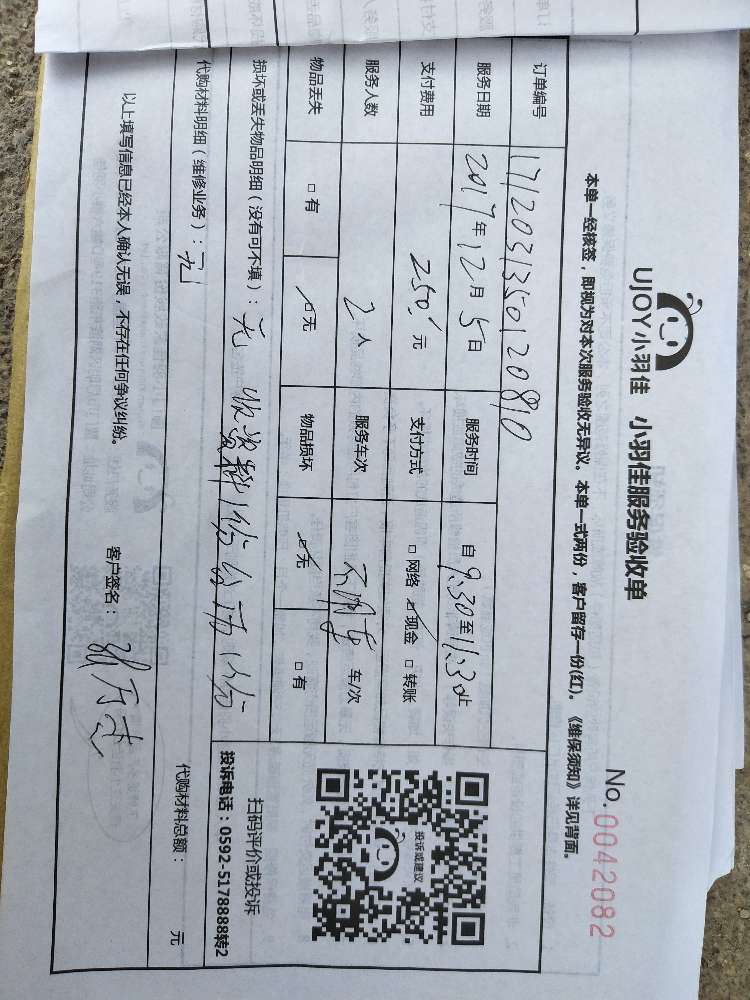 UJOY小羽佳 小羽佳服务验收单
No. 0042082
本单一经核签，即视为对本次服务验收无异议。本单一式两份，客户留存一份(红)。《维保须知》详见背面。
订单编号 1712031350120810
服务日期 2017年12月5日 服务时间 自9:30至11:30止
支付费用 250元 支付方式 □网络 ☑现金 □转账
服务人数 2人 服务车次 不用车 车/次
物品丢失 □有 ☑无 物品损坏 ☑无 □有
损坏或丢失物品明细（没有可不填）：无
代购材料明细（维修业务）：无
代购材料总额： 元
以上填写信息已经本人确认无误，不存在任何争议纠纷。 客户签名：
投诉或建议
扫码评价或投诉
投诉电话：0592-5178888转2